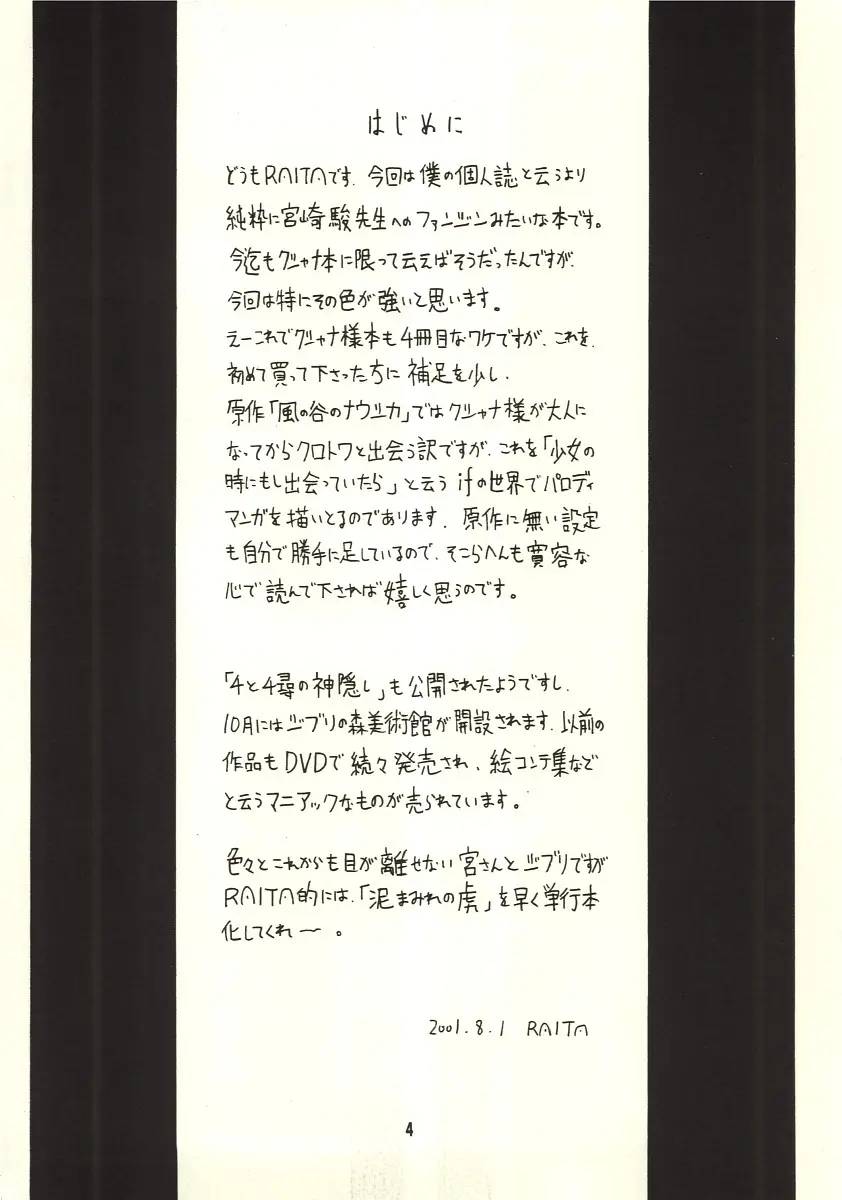 はじめに
どうもRAITAです. 今回は僕の個人誌と云うより
純粋に宮崎駿先生へのファンジンみたいな本です。
今迄もクシャナ本に限って云えばそうだったんですが.
今回は特にその色が強いと思います。
えーこれでクシャナ様本も4冊目なワケですが、これを、
初めて買って下さった方に補足を少し.
原作「風の谷のナウシカ」ではクシャナ様が大人に
なってからクロトワと出会う訳ですが、これを「少女の
時にもし出会っていたら」と云うifの世界でパロディ
マンガを描いとるのであります. 原作に無い設定
も自分で勝手に足しているので、そこらへんも寛容な
心で読んで下されば嬉しく思うのです。
「4と4尋の神隠し」も公開されたようですし.
10月にはジブリの森美術館が開設されます. 以前の
作品もDVDで続々発売され、絵コンテ集など
と云うマニアックなものが売られています。
色々とこれからも目が離せない宮さんとジブリですが
RAITA的には.「泥まみれの虎」を早く単行本
化してくれ〜。
2001.8.1 RAITA
4